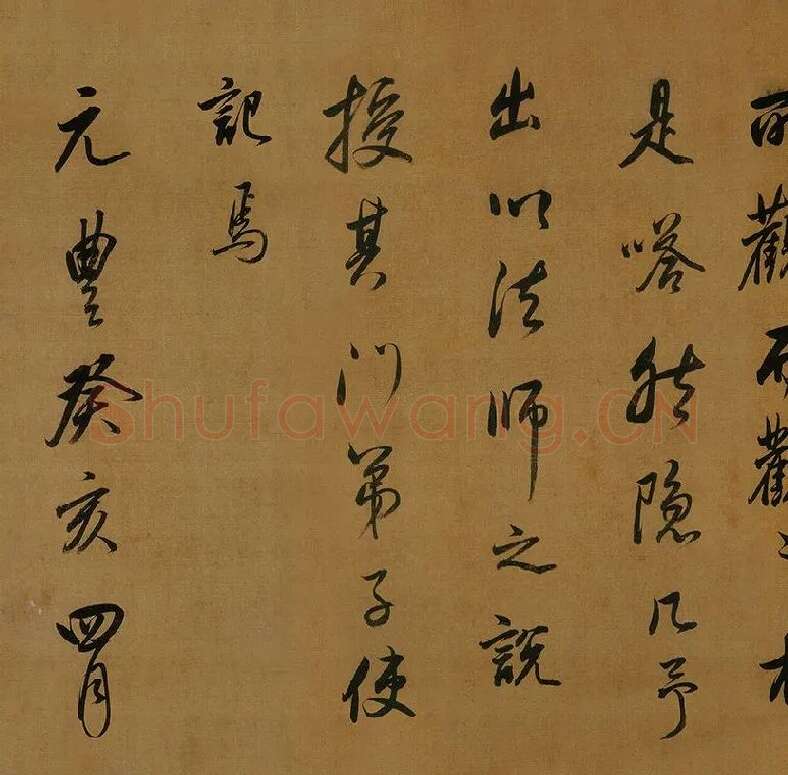 所觀而觀者相
是嗒然隱几予
出以法師之說
授其門弟子使
記焉
元豐癸亥四月
shufawang.CN